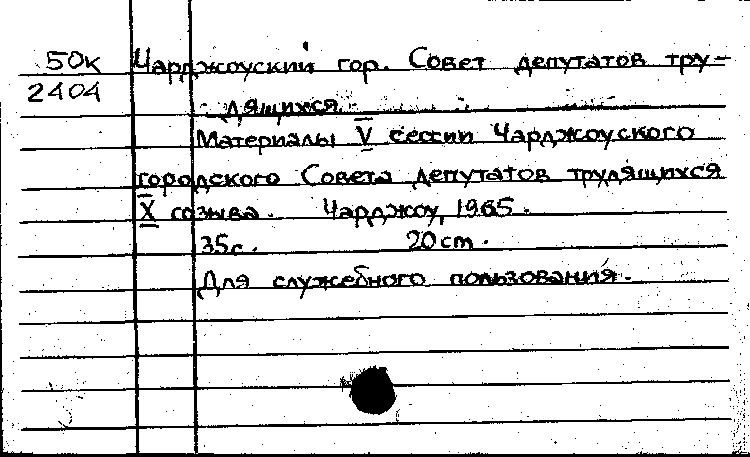 50к Чарджоуский гор. Совет депутатов тру-
2404 дящихся.
Материалы V сессии Чарджоуского
городского Совета депутатов трудящихся
X созыва. Чарджоу, 1965.
35с. 20см.
Для служебного пользования.